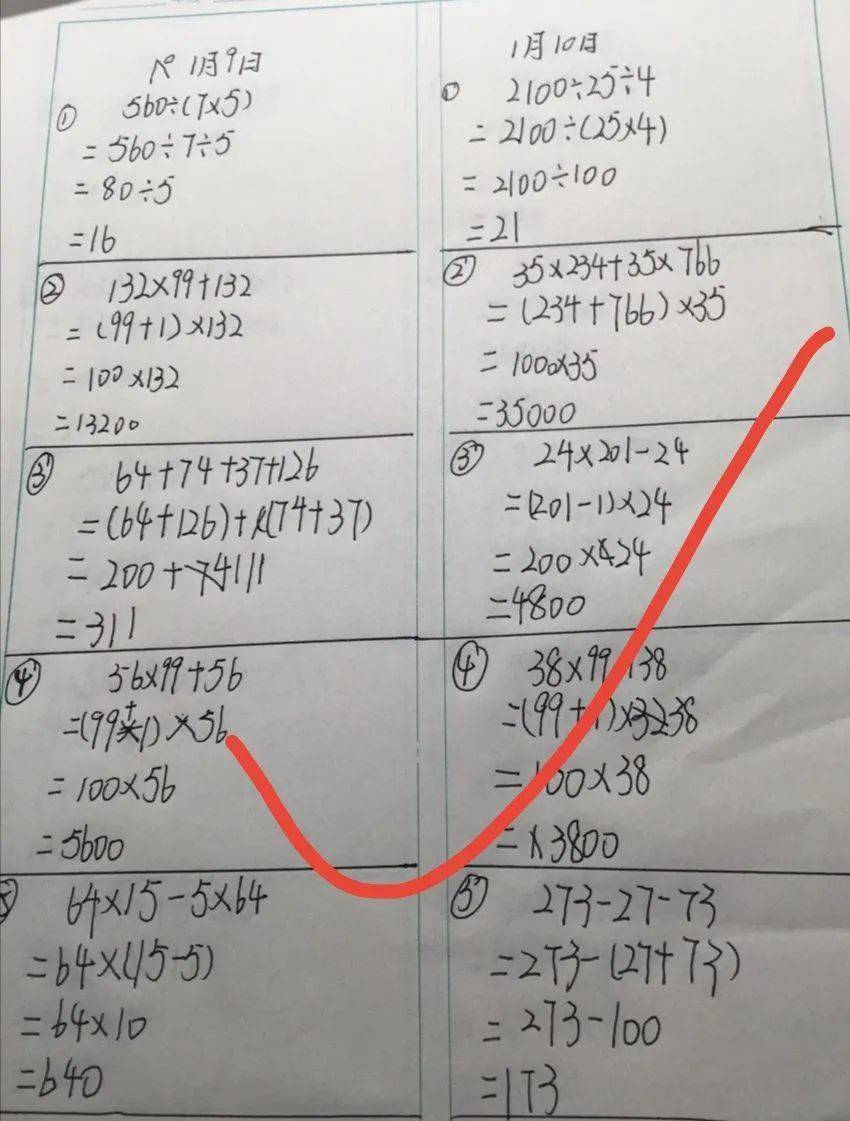 1月9日
① 560÷(7×5)
=560÷7÷5
=80÷5
=16
② 132×99+132
=(99+1)×132
=100×132
=13200
③ 64+74+37+126
=(64+126)+(74+37)
=200+111
=311
④ 56×99+56
=(99+1)×56
=100×56
=5600
64×15-5×64
=64×(15-5)
=64×10
=640
1月10日
① 2100÷25÷4
=2100÷(25×4)
=2100÷100
=21
② 35×234+35×766
=(234+766)×35
=1000×35
=35000
③ 24×201-24
=(201-1)×24
=200×24
=4800
④ 38×99+38
=(99+1)×38
=100×38
=3800
⑤ 273-27-73
=273-(27+73)
=273-100
=173